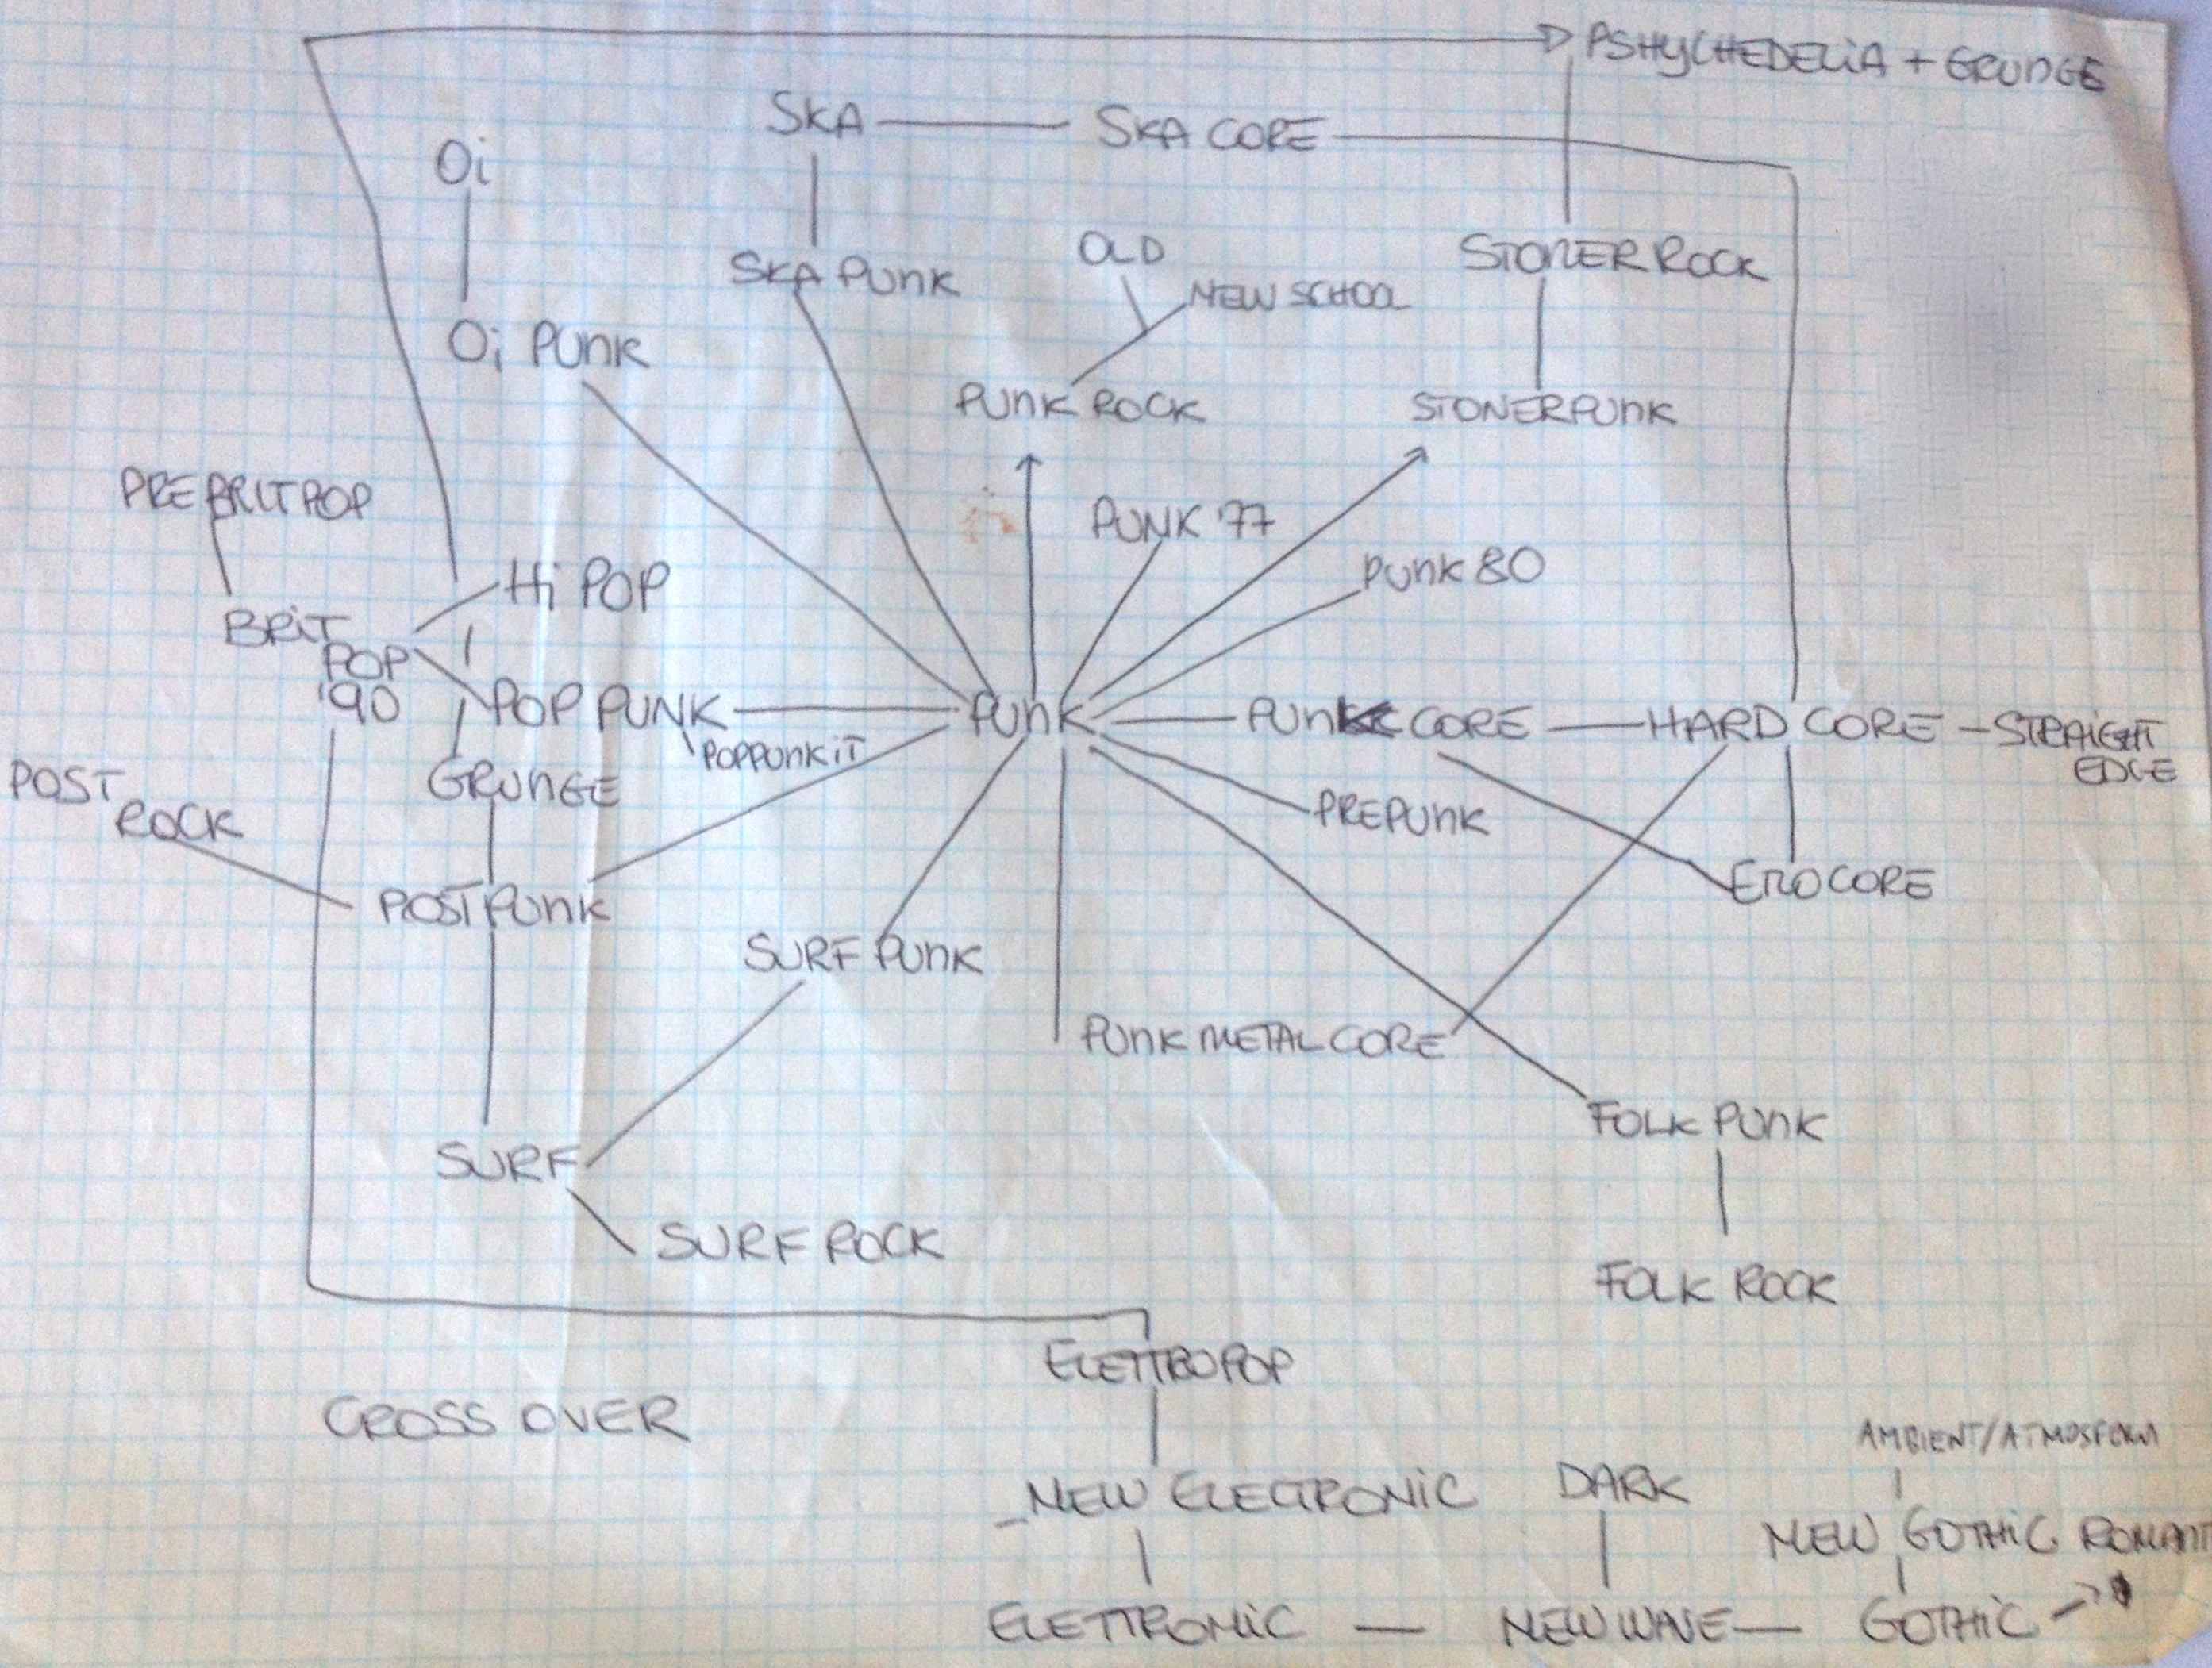 PSHYCHEDELIA + GRUDGE
SKA
SKA CORE
Oi
OLD
STONER ROCK
SKA PUNK
NEW SCHOOL
Oi PUNK
PUNK ROCK
STONERPUNK
PREBRITPOP
PUNK '77
PUNK 80
Hi POP
BRIT
POP
'90
POP PUNK
PUNK
PUNK CORE
HARD CORE
STRAIGHT
EDGE
POPPUNK iT
GRUNGE
POST
ROCK
PREPUNK
EMOCORE
POSTPUNK
SURF PUNK
PUNK METAL CORE
FOLK PUNK
SURF
SURF ROCK
FOLK ROCK
ELETTROPOP
CROSS OVER
AMBIENT/ATMOSFERM
NEW ELECTRONIC
DARK
NEW GOTHIC ROMANT
ELETTRONIC
NEW WAVE
GOTHIC